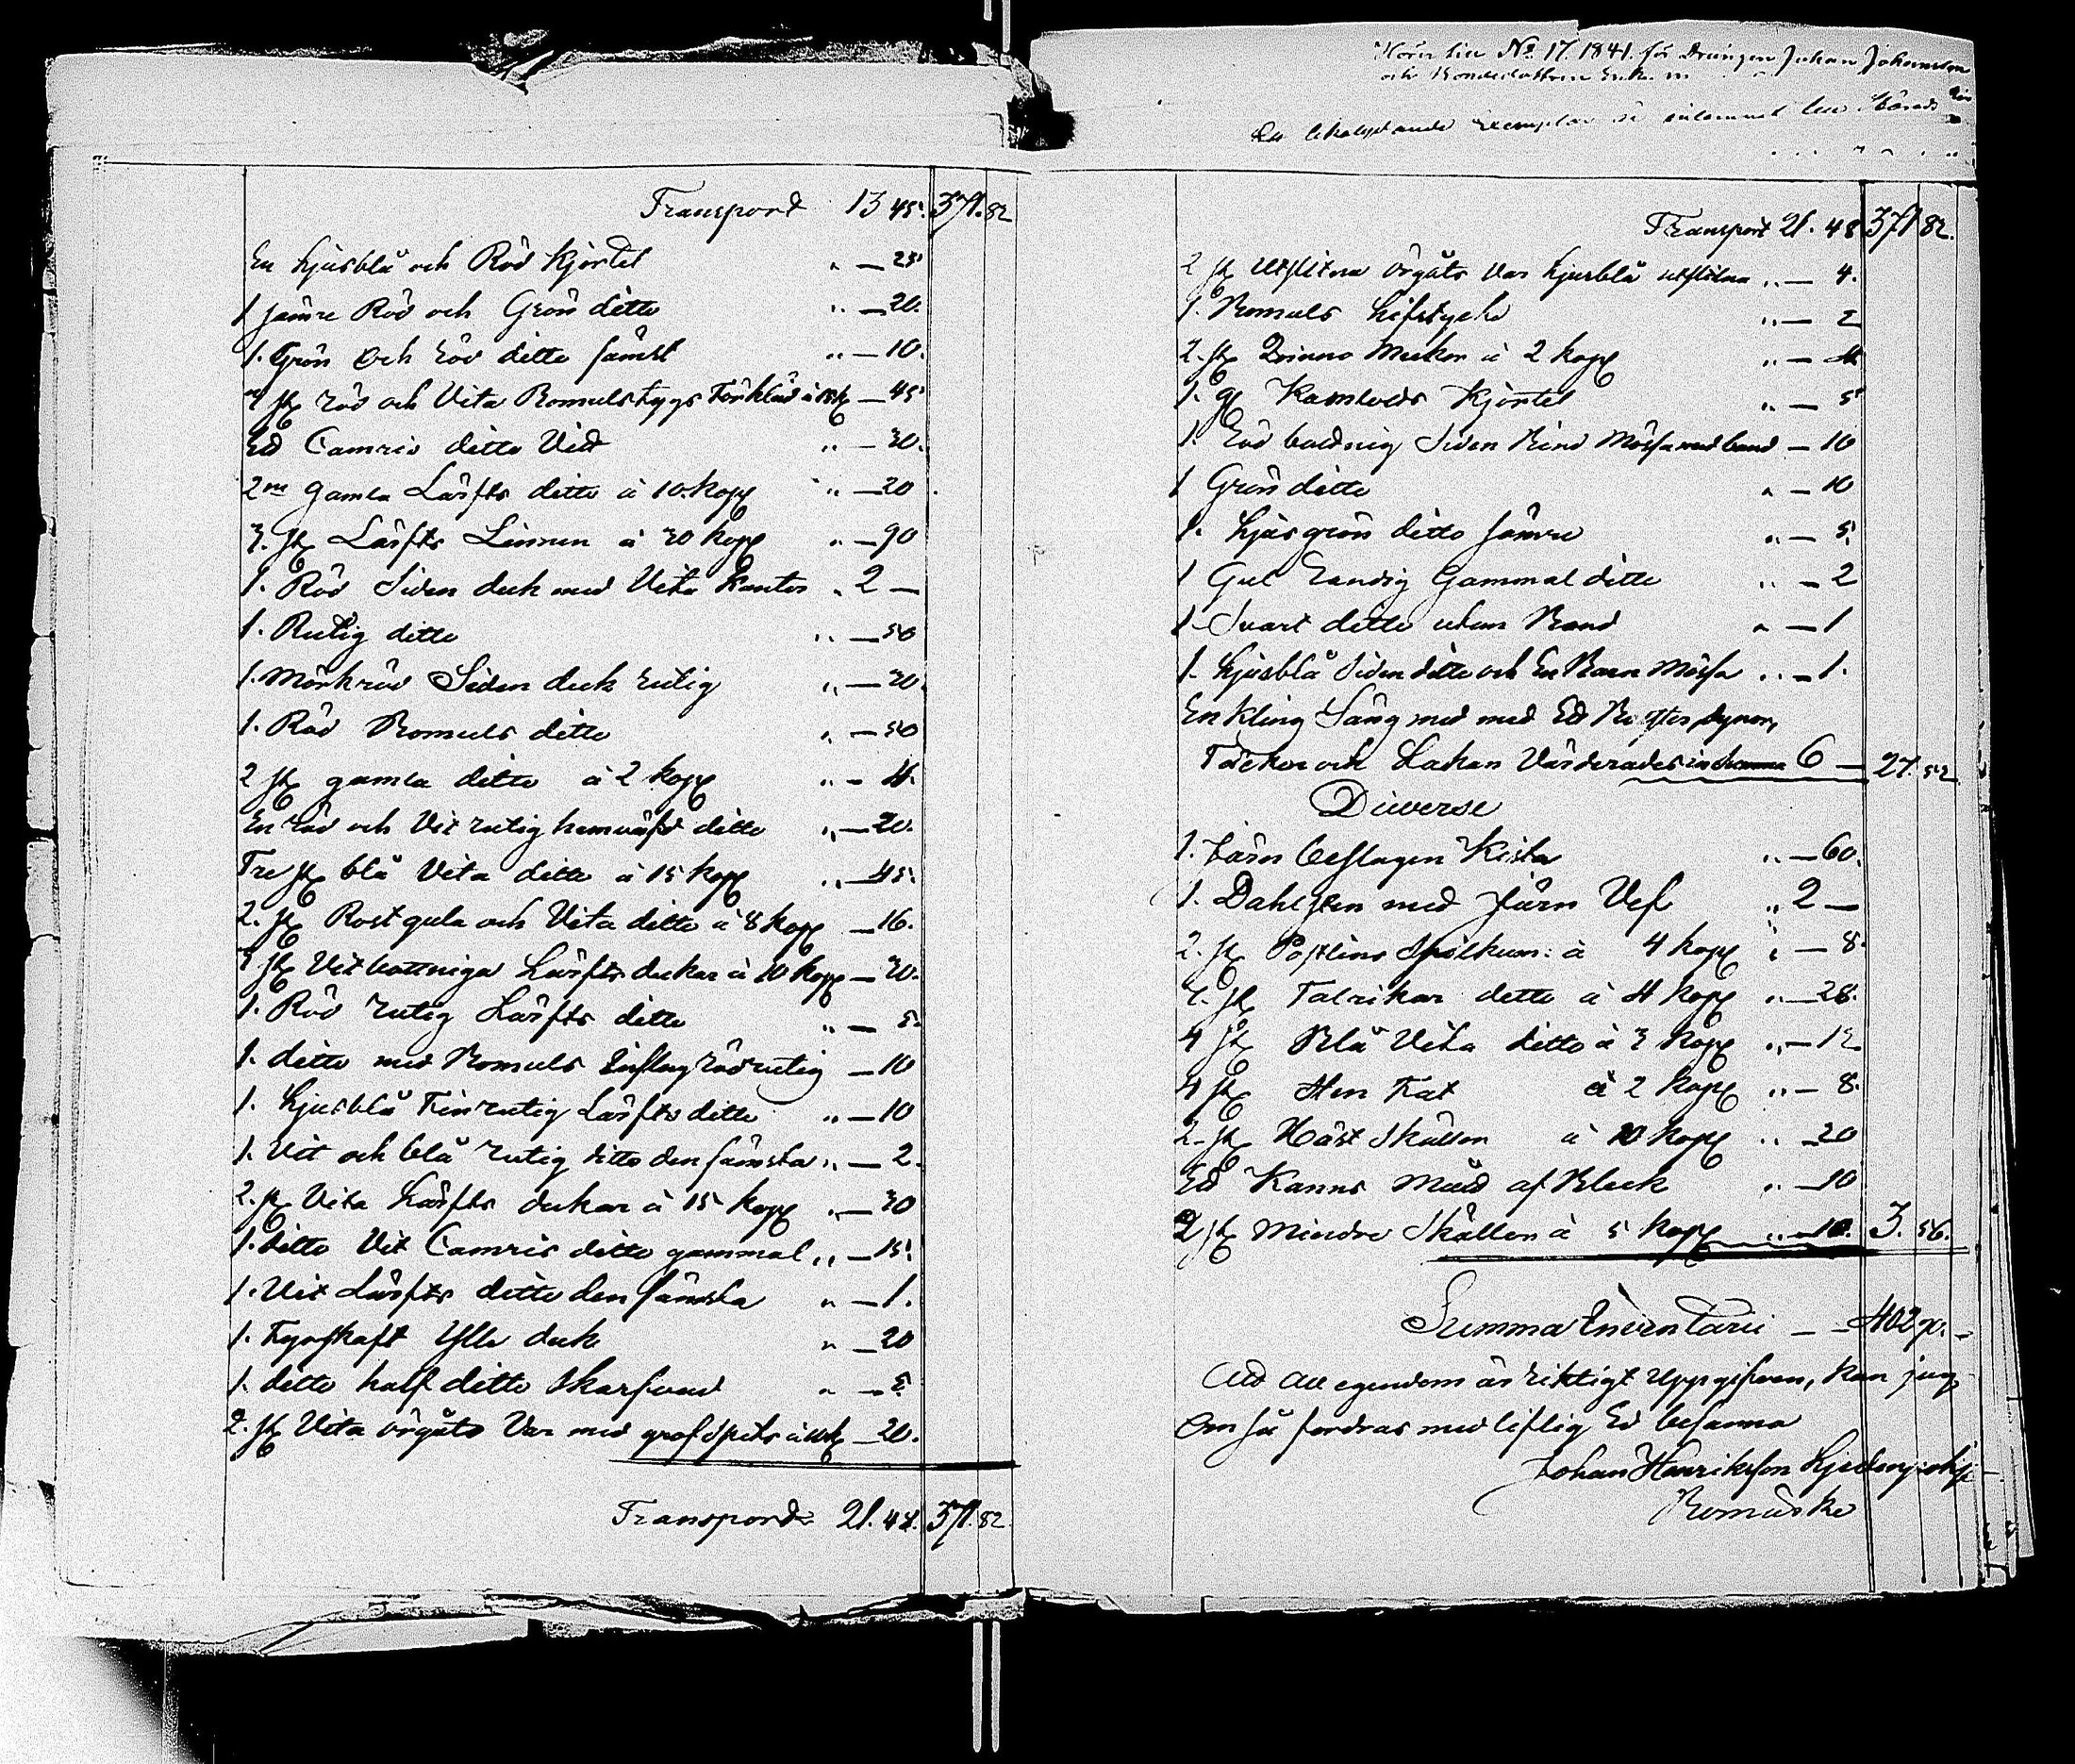 Transport 13 45. 371. 82
En Ljusblå och Röd Kjortel " — 25
1 sämre Röd och Grön ditto " — 20.
1. Grön och röd ditto sämst " — 10.
3 st röd och Vita Bomulstygs Förkläd à 15 k — 45
Ed Camris ditto Vidt " — 30.
2ne gamla Lärfts ditto à 10 kopp " — 20
3. st Lärfts Linnen à 30 kopp " — 90
1. Röd Siden duk med Vita Kanter " 2 —
1. Rutig ditto " — 50
1. Mörkröd Siden duk rutig " — 20
1. Röd Bomuls ditto " — 50
2 st gamla ditto à 2 kopp " — 4.
En röd och Vit rutig hemväfd ditto " — 20.
Tre st blå Vita ditto à 15 kopp " — 45.
2. st Rostgula och Vita ditto à 8 kopp — 16.
3 st Vitbottniga Lärfts dukar à 10 kopp — 30.
1. Röd rutig Lärfts ditto " — 5.
1. ditto med Bomuls Inslag rödrutig — 10
1. Ljusblå Finrutig Lärfts ditto " — 10
1. Vit och blå rutig ditto den sämsta " — 2.
2. st Vita Lärfts dukar à 15 kopp " — 30
1. ditto Vit Camris ditto gammal " — 15.
1. Vit Lärfts ditto den sämsta " — 1.
1. Fyrskaft Ylle duk " — 20
1. ditto half ditto Skarfvad " — 5.
2. st Vita örgåts Var med grof Spits à 10 k — 20.
Transport 21. 48. 371. 82
No 17. 1841. för Drängen Johan Johansson
och Bondedottren
Ett likalydande Exemplar är inlemnat
Transport 21. 48 371 82.
2 st Utslitna örgåts Var Ljusblå utslitna " — 4.
1. Bomuls Lifstycke " — 2
2. st Qvinno Mückor à 2 kopp " — 4
1. gl Kamlods Kjortel " — 5
1. röd Siden Bind Mössa med band — 10
1 Grön ditto " — 10
1. Ljusgrön ditto sämre " — 5.
1 Gul Randig Gammal ditto " — 2
1. Svart ditto utan Band " — 1
1. Ljusblå Siden ditto och En Barn Mössa " — 1.
En Kling Säng med med Ed dynor,
Täcken och Lakan Värderades in Summa 6 — 27. 52
Diverse
1. Järn beslagen Kista " — 60.
1. med Järn Vef " 2 —
2. st Påstlins Spilkum: à 4 kopp " — 8.
7. st Talrikar ditto à 4 kopp " — 28.
4 st Blå Vita ditto à 3 kopp " — 12
4 st Sten Fat à 2 kopp " — 8.
2. st Häst Skällon à 10 kopp " — 20
Ed Kanns Mååd af Bleck " — 10
2 st Mindre Skällon à 5 kopp " — 10. 3. 56.
Summa Inventarii — — 402 90. —
Att all egendom är riktigt Uppgifven, kan jag
Om så fordras med liflig Ed besanna
Johan Henriksson
Bomärke